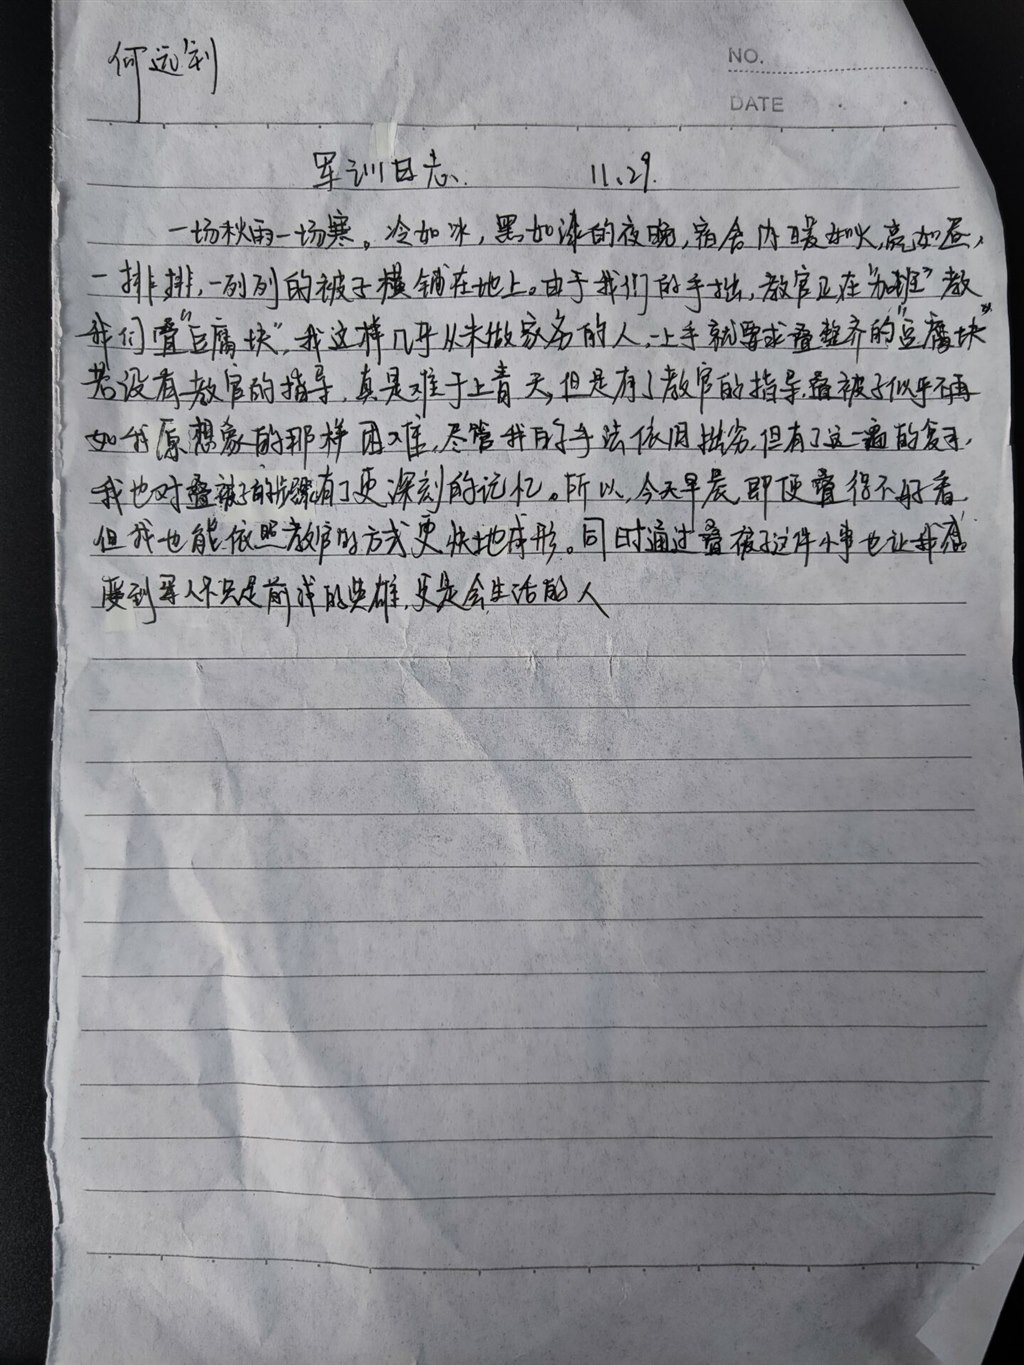 何远钊
NO.
DATE
军训日志. 11.29.
一场秋雨一场寒。冷如冰，黑如漆的夜晚，宿舍内暖如火，亮如昼，
一排排，一列列的被子横铺在地上。由于我们的手拙，教官正在“加班”教
我们叠“豆腐块”，我这样几乎从未做家务的人，一上手就要求叠整齐的“豆腐块”
若没有教官的指导，真是难于上青天，但是有了教官的指导，叠被子似乎不再
如我原想象的那样困难，尽管我的手法依旧拙劣，但有了这一遍的复习，
我也对叠被子的步骤有了更深刻的记忆。所以，今天早晨，即便叠得不好看，
但我也能依照教官的方式更快地成形。同时通过叠被子这件小事也让我感
受到军人不只是前线的英雄，更是会生活的人